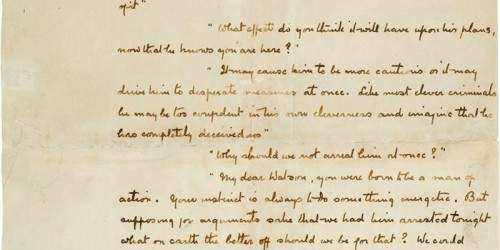 yet"
"What effect do you think it will have upon his plans,
now that he knows you are here?"
"It may cause him to be more cautious or it may
drive him to desperate measures at once. Like most clever criminals
he may be too confident in his own cleverness and imagine that he
has completely deceived us"
"Why should we not arrest him at once?"
"My dear Watson, you were born to be a man of
action. Your instinct is always to do something energetic. But
supposing for arguments sake that we had him arrested tonight
what on earth the better off should we be for that? We could